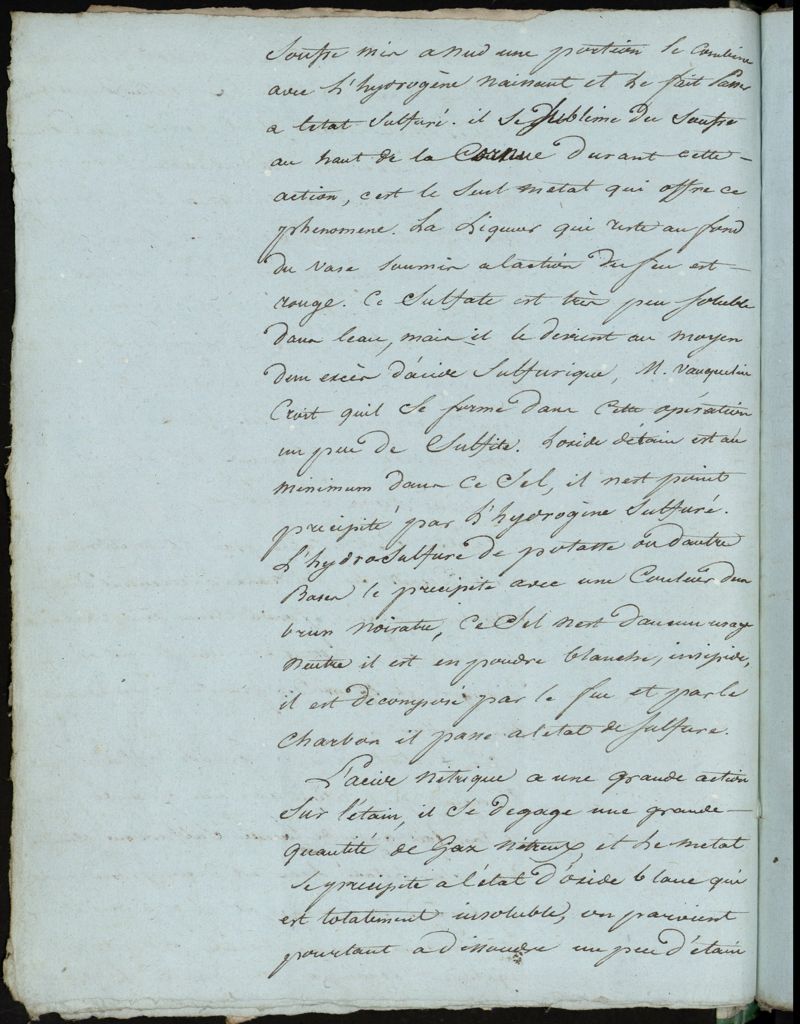 Soufre mis a nud une portion se combine
avec L'hydrogène naissant et Le fait Passer
a letat Sulfuré. il se sublime du Soufre
au haut de la Cornue durant cette -
action, cest le Seul métal qui offre ce
phenomene. La Liqueur qui reste au fond
du vase soumis a laction du feu est -
rouge. Ce Sulfate est très peu soluble
dans leau, mais il le devient au moyen
dun excès d'acide Sulfurique, M. Vauquelin
Croit quil se forme dans cette opération
un peu de Sulfite. Loxide détain est au
minimum dans ce Sel, il nest point
précipité par L'hydrogène Sulfuré.
L'hydroSulfure de potasse ou dautre
Bases le précipite avec une Couleur dun
brun noiratre, Ce Sel nest daucun usage
neutre il est en poudre blanche, insipide,
il est décomposé par le feu et par le
Charbon il passe a letat de Sulfure.
L'acide nitrique a une grande action
Sur l'étain, il se degage une grande -
quantité de Gaz nitreux, et Le metal
se precipite a l'état d'oxide blanc qui
est totalement insoluble, on parvient
pourtant a dissoudre un peu d'étain